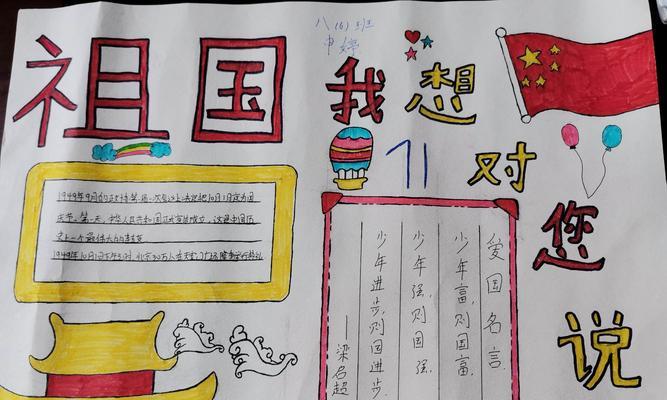 八(6)班
申婷
祖国我想对您说
71
1949年9月的政协第一次会议上决定把10月1日定为国
庆节。第一天,中华人民共和国正式宣告成立,这是中国历
史上一个最伟大的转变
1949年10月1日下午3时,北京30万人在天安门广场隆重举行典礼
爱国名言
少年富,则国富,
少年强,则国强,
少年进步,则国进步.
——梁启超